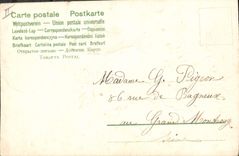 Carte postale Postkarte
Weltpostverein — Union postale universelle
Levelező-Lap — Correspondenzkarte — Dopisnice
Karta korespondencyjna — Korespondenční lístek
Briefkaart — Cartolina postale — Post card — Brefkort
Открытое письмо
Tarjeta Postal
Madame G. Pigeon
86 rue de Bagneux
au Grand Montrouge
Seine